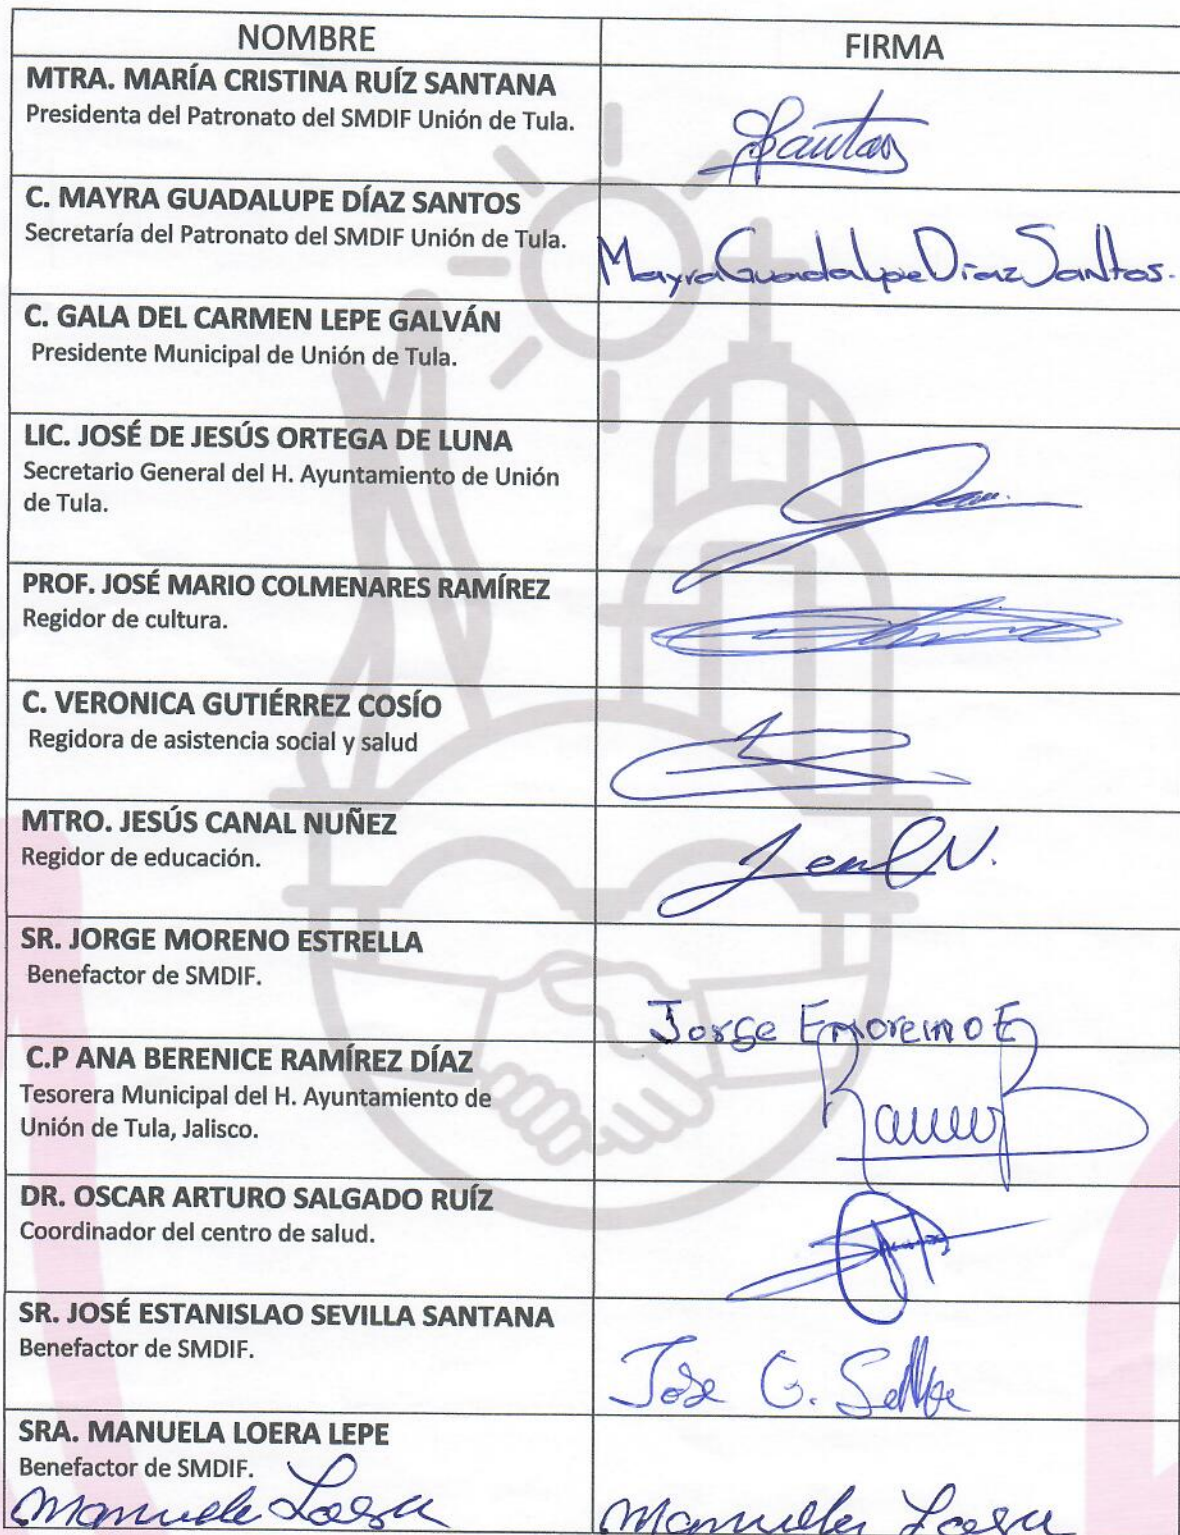 NOMBRE
FIRMA
MTRA. MARÍA CRISTINA RUÍZ SANTANA
Presidenta del Patronato del SMDIF Unión de Tula.
C. MAYRA GUADALUPE DÍAZ SANTOS
Secretaría del Patronato del SMDIF Unión de Tula.
Mayra Guadalupe Diaz Santos.
C. GALA DEL CARMEN LEPE GALVÁN
Presidente Municipal de Unión de Tula.
LIC. JOSÉ DE JESÚS ORTEGA DE LUNA
Secretario General del H. Ayuntamiento de Unión
de Tula.
PROF. JOSÉ MARIO COLMENARES RAMÍREZ
Regidor de cultura.
C. VERONICA GUTIÉRREZ COSÍO
Regidora de asistencia social y salud
MTRO. JESÚS CANAL NUÑEZ
Regidor de educación.
SR. JORGE MORENO ESTRELLA
Benefactor de SMDIF.
Jorge
C.P ANA BERENICE RAMÍREZ DÍAZ
Tesorera Municipal del H. Ayuntamiento de
Unión de Tula, Jalisco.
DR. OSCAR ARTURO SALGADO RUÍZ
Coordinador del centro de salud.
SR. JOSÉ ESTANISLAO SEVILLA SANTANA
Benefactor de SMDIF.
Jose
SRA. MANUELA LOERA LEPE
Benefactor de SMDIF.
Manuela Loera
Manuela Loera